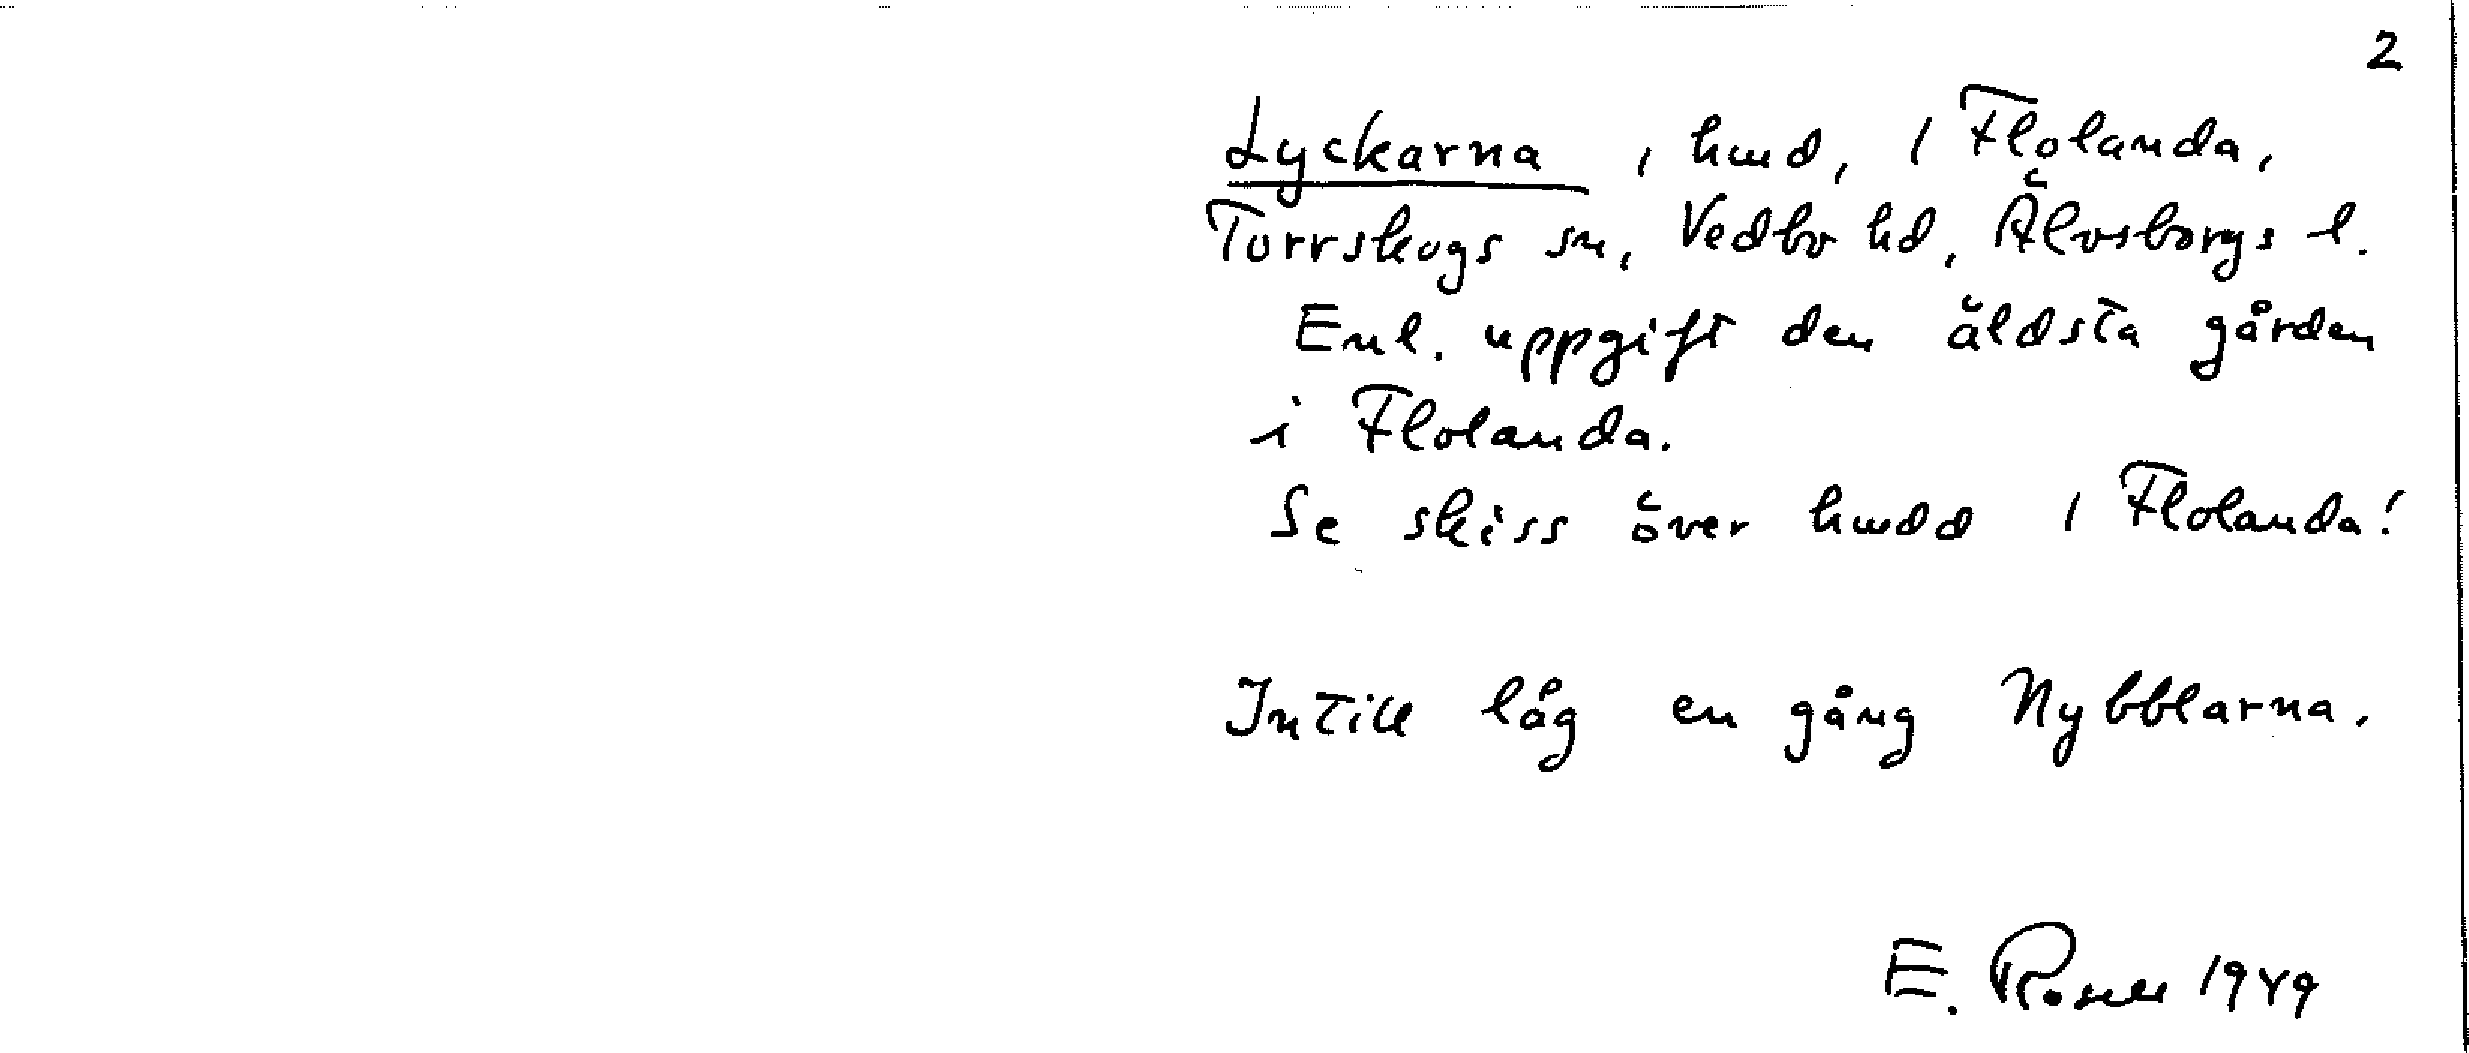 2
Lyckarna, hmd, i Flolanda,
Torrskogs sn, Vedbo hd, Älvsborgs l.
Enl. uppgift den äldsta gården
i Flolanda.
Se skiss över hmdd i Flolanda!
Intill låg en gång Nybblarna.
E. Rosell 1949